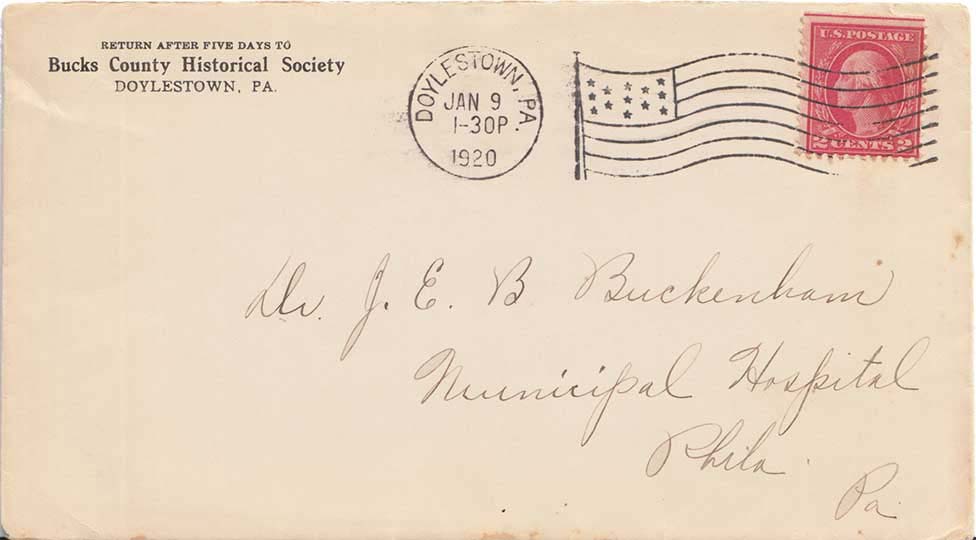 RETURN AFTER FIVE DAYS TO
Bucks County Historical Society
DOYLESTOWN, PA.
DOYLESTOWN, PA.
JAN 9
1-30P
1920
U.S. POSTAGE
2 CENTS 2
Dr. J. E. B Buckenham
Municipal Hospital
Phila.
Pa.